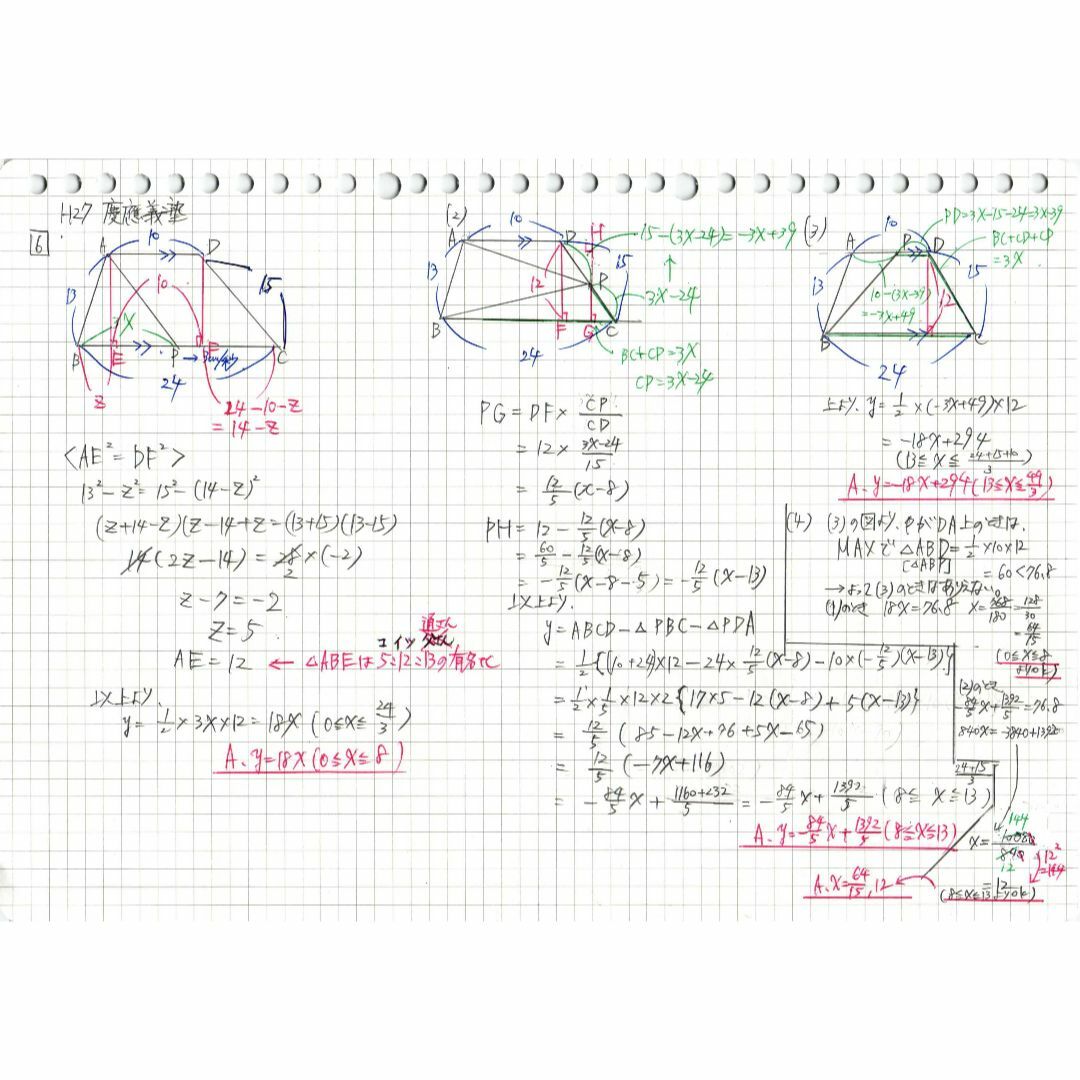 H27 慶應義塾
6
A 10 D
13
10
15
x
B E P F C
→3cm/秒
24
z
24-10-z
=14-z
<AE²=DF²>
13²-z²=15²-(14-z)²
(z+14-z)(z-14+z)=(13+15)(13-15)
14(2z-14)=28×(-2)
2
z-7=-2
z=5
AE=12 ← △ABEは5:12:13の有名な
以上より、
y=1/2×3x×12=18x (0≦x≦24/3)
A、y=18x(0≦x≦8)
(2)
10
A D H
15-(3x-24)=-3x+39
13
12
15
P
3x-24
B F G C
24
BC+CP=3x
CP=3x-24
PG=DF×CP/CD
=12×(3x-24)/15
=12/5(x-8)
PH=12-12/5(x-8)
=60/5-12/5(x-8)
=-12/5(x-8-5)=-12/5(x-13)
以上より、
y=ABCD-△PBC-△PDA
=1/2{(10+24)×12-24×12/5(x-8)-10×(-12/5)(x-13)}
=1/2×1/5×12×2{17×5-12(x-8)+5(x-13)}
=12/5(85-12x+96+5x-65)
=12/5(-7x+116)
=-84/5x+(1160+232)/5=-84/5x+1392/5(8≦x≦13)
24+15/3
A、y=-84/5x+1392/5(8≦x≦13)
A、x=64/15,12
(3)
10
A P D
PD=3x-15-24=3x-39
BC+CD+CP
=3x
13
10-(3x-39)
=-3x+49
12
15
B C
24
上より、y=1/2×(-3x+49)×12
=-18x+294
(13≦x≦(24+15+10)/3)
A、y=-18x+294(13≦x≦49/3)
(4) (3)の図より、PがDA上のときは、
MAXで△ABD=1/2×10×12
[△ABP]
=60<76.8
→よって(3)のときはありえない。
(1)のとき 18x=76.8 x=768/180=128/30
=64/15
(0≦x≦8よりok)
(2)のとき
-84/5x+1392/5=76.8
840x=-3840+13920
x=10080/840
144
12
12²
=144
=12
(8≦x≦13よりok)